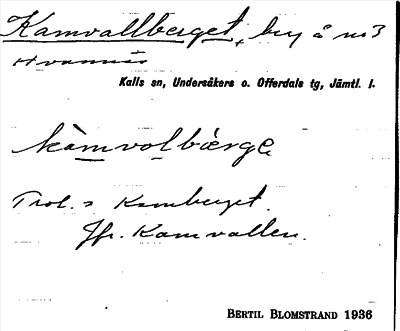 Kamvallberget, by å nr 3
Hvamnis
Kalls sn, Undersåkers o. Offerdals tg, Jämtl. l.
kàmvolbærge
Trol. = Kamberget.
Jfr. Kamvallen.
BERTIL BLOMSTRAND 1936